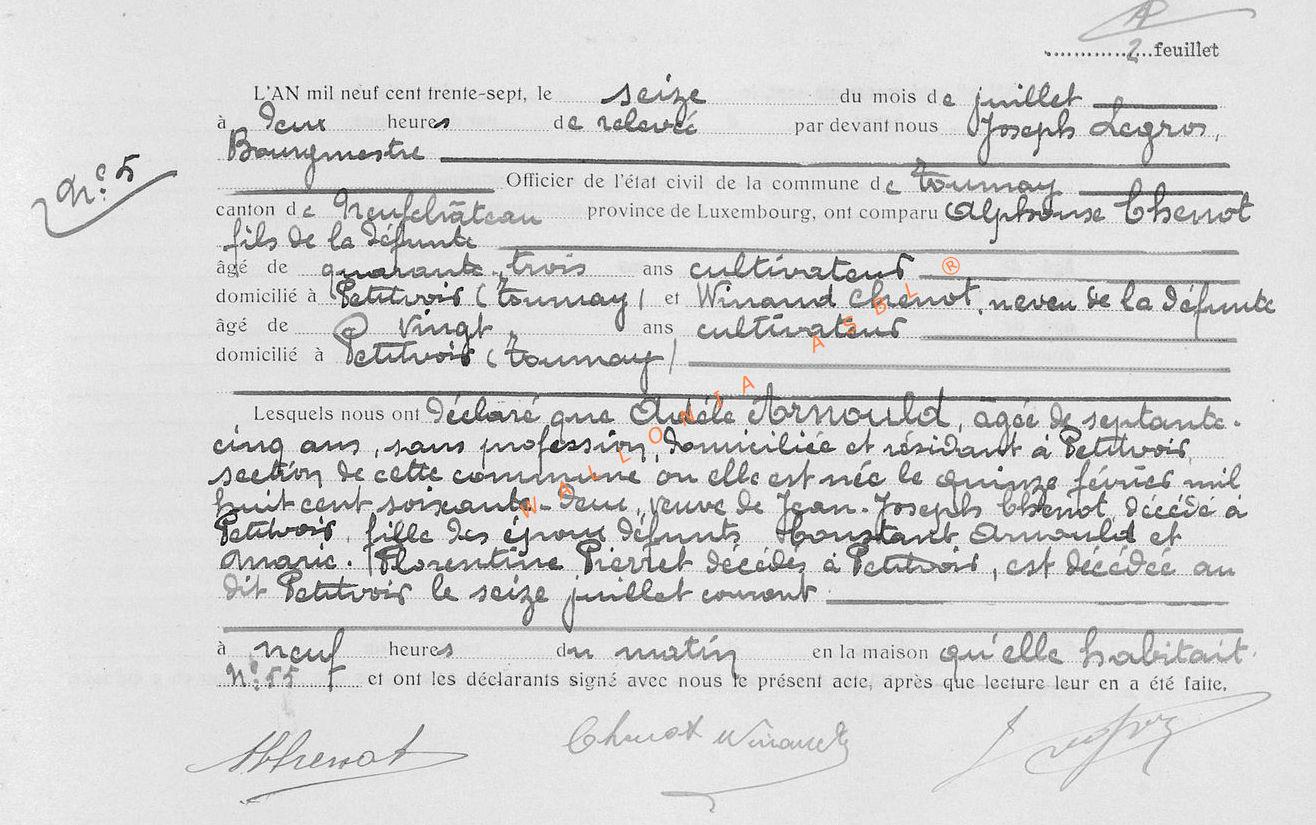 2 feuillet
L'AN mil neuf cent trente-sept, le seize du mois de juillet
à deux heures de relevée par devant nous Joseph Legros,
Bourgmestre
N° 5
Officier de l'état civil de la commune de Tournay
canton de Neufchâteau province de Luxembourg, ont comparu Alphonse Chenot
fils de la défunte
âgé de quarante-trois ans cultivateur
domicilié à Petitvoir (Tournay) et Winand Chenot, neveu de la défunte
âgé de vingt ans cultivateur
domicilié à Petitvoir (Tournay)
Lesquels nous ont déclaré que Adèle Arnould, âgée de septante-
cinq ans, sans profession, domiciliée et résidant à Petitvoir,
section de cette commune, où elle est née le quinze février mil
huit cent soixante-deux, veuve de Jean-Joseph Chenot, décédé à
Petitvoir, fille des époux défunts Constant Arnould et
Marie-Florentine Pierret décédés à Petitvoir, est décédée au
dit Petitvoir le seize juillet courant
à neuf heures du matin en la maison qu'elle habitait
N° 55 et ont les déclarants signé avec nous le présent acte, après que lecture leur en a été faite.
AChenot Chenot Winand
WALLONIA ASBL ®